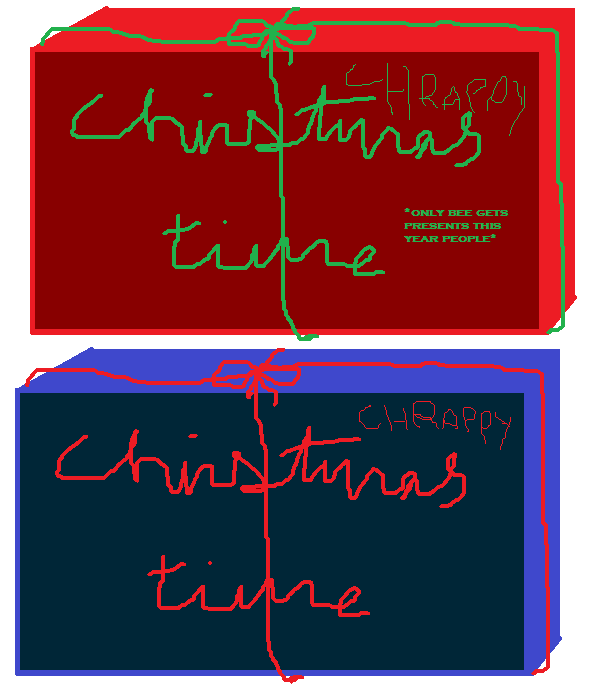 CHRAPPY
Christmas
*ONLY BEE GETS
PRESENTS THIS
YEAR PEOPLE*
time
CHRAPPY
Christmas
time